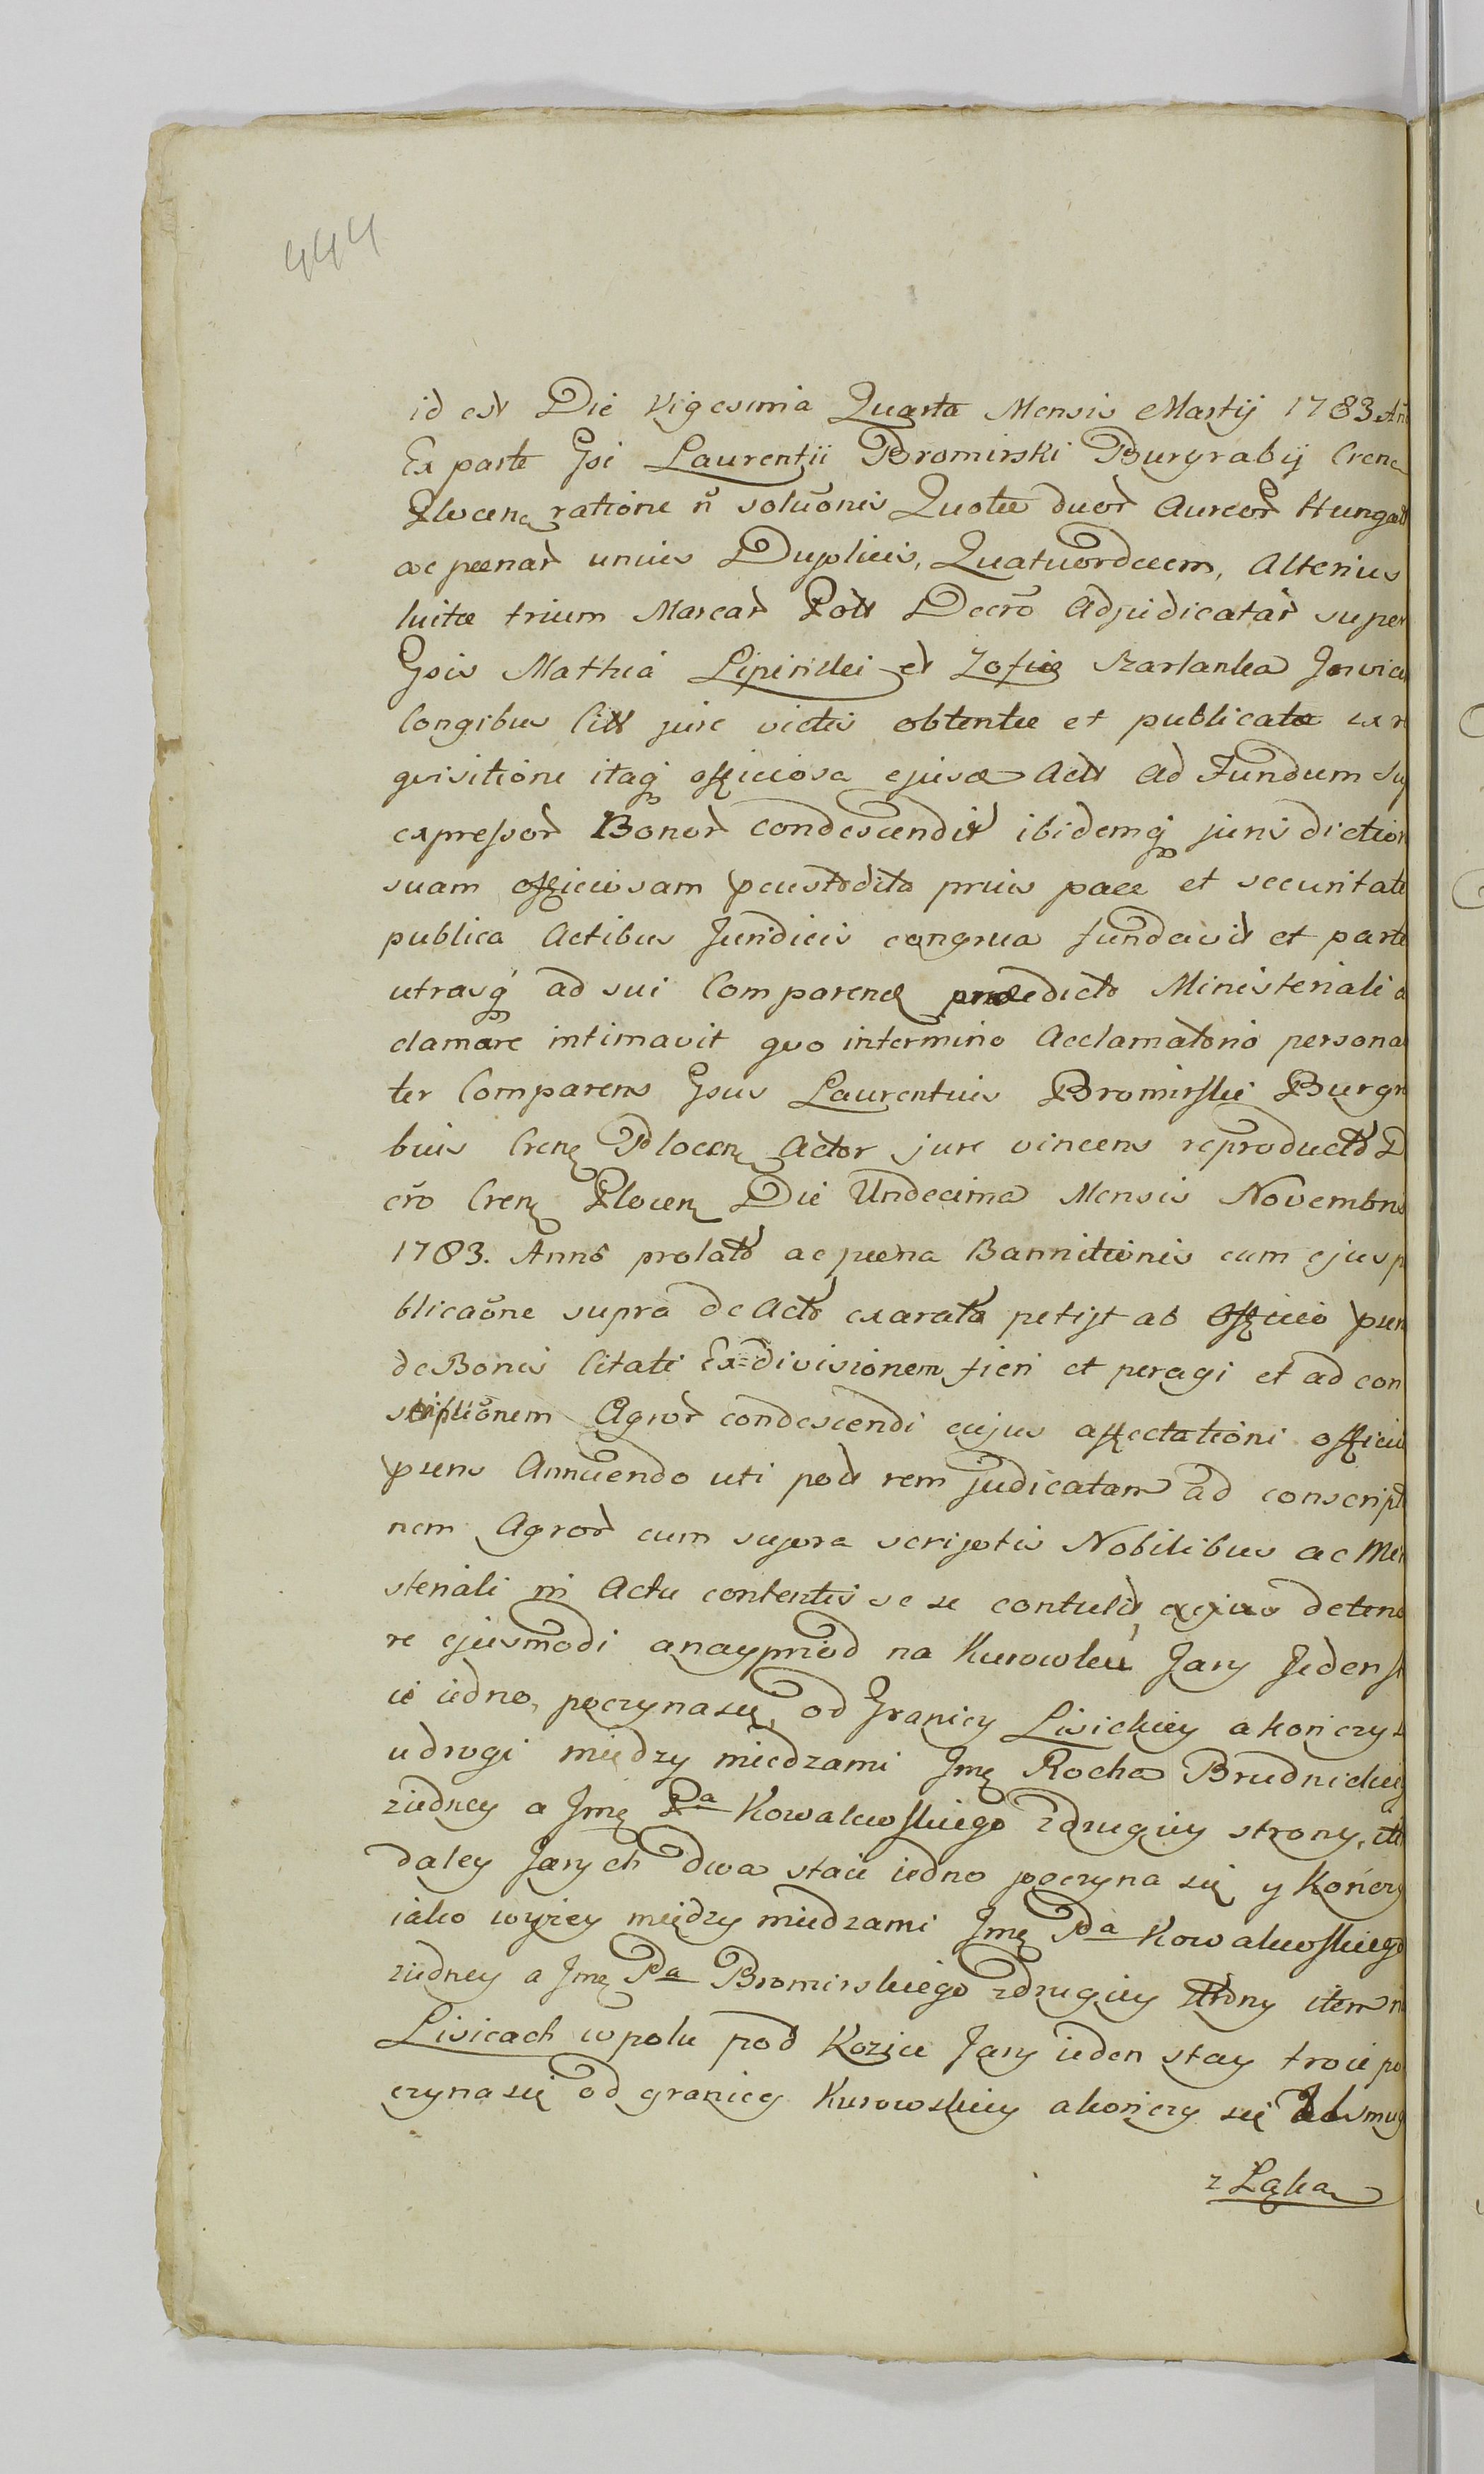 444
id est Die Vigesima Quarta Mensis Martij 1783 Añ
Ex parte Gsi Laurentii Bromirski Burgrabij Cren
Plocen ratione ñ soluõnis Quotæ duor Aureor Hungar
ac pænar unius Duplicis, Quatuordecem, Alterius
luitæ trium Marcar Poll Decro Adjudicatar super
Gsis Mathia Lipinski et Zofia Szarlanka Invice
Congibus Citt jure victis obtentæ et publicatæ ex re
quisitione itaq officiosa ejusd Actt ad Fundum Su
expressor Bonor condescendit ibidemq juris diction
suam officiosam pcustodita prius pace et securitate
publica Actibus Juridicis congrua fundavit et parte
utrasq ad sui Comparend prædicto Ministeriali a
clamare intimavit quo intermino Acclamatorio persona
ter Comparens Gsus Laurentius Bromirski Burgr
bius Cren Plocen Actor jure vincens reproducto D
cro Cren Plocen Die Undecima Mensis Novembris
1783. Anno prolato ac pæna Bannitionis cum ejus p
blicaõne supra de Acto exarata petijt ab Officio psen
de Bonis Citati Ex=divisionem fieri et peragi et ad con
scriptiõnem Agror condescendi cujus affectationi officiu
psens Annuendo uti post rem judicatam ad conscript
nem Agror cum supra scriptis Nobilibus ac Min
steriali in Actu contentis se se contulit, ejus deteno
re ejusmodi anayprzod na Kurowku Jary Jeden st
ie iedno, poczyna się, od Granicy Lisickiey a kończy s
udrogi między miedzami Jmę Rocha Brudnickieg
ziedney a Jmę Pa Kowalewskiego zdrugiey strony, ite
daley Jarych dwa staie iedno poczyna się y Kończy
iako wyżey między miedzami Jmę Pa Kowalewskiego
ziedney a Jmę Pa Bromirskiego zdrugiey strony item n
Lisicach wpolu pod Kozice Jary ieden stay troie po
czyna się od granicy Kurowskiey akończy się smug
z Łąka